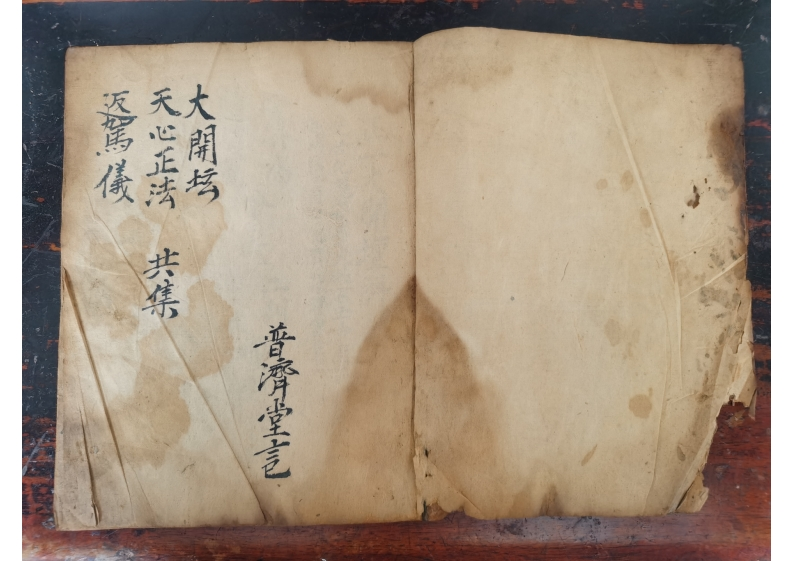 大開坛
天心正法
返駕儀
共集
普濟堂記